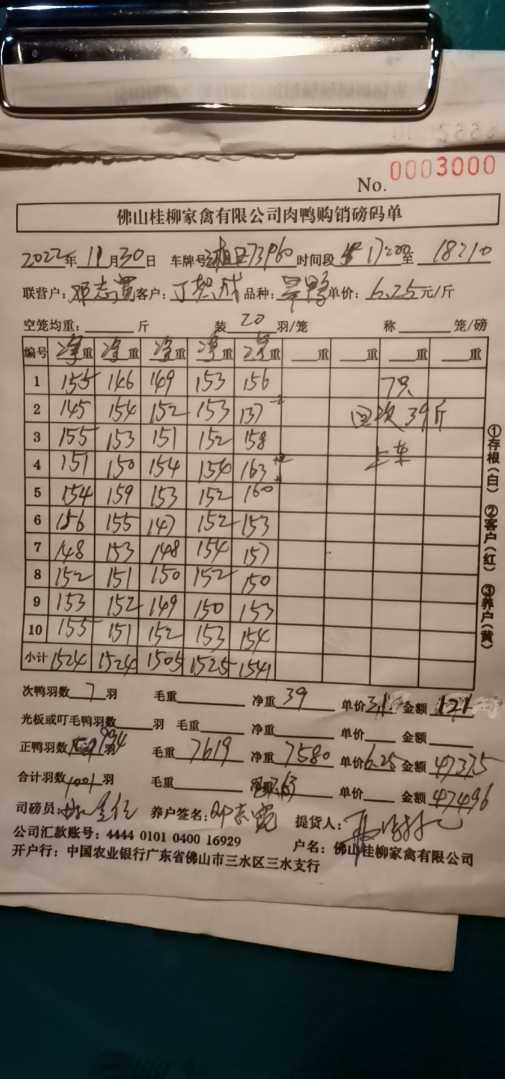 No. 0003000
佛山桂柳家禽有限公司肉鸭购销磅码单
2022年 11月30日 车牌号 73P60 时间段 1720 至 18210
联营户：邓志宽 客户： 品种：旱鸭 单价：6.25元/斤
空笼均重： 斤 装 20 羽/笼 称 笼/磅
编号 净重 净重 净重 净重 净重 重 重 重 重
1 155 146 149 153 156 7只
2 145 154 152 153 137 回次39斤
3 155 153 151 152 158
4 151 150 154 154 163 上车
5 154 159 153 152 160
6 156 155 147 152 153
7 148 153 148 154 157
8 152 151 150 152 150
9 153 152 149 150 153
10 155 151 152 153 154
小计 1524 1524 1505 1525 1541
次鸭羽数 7 羽 毛重 净重 39 单价 3.1 金额 121
光板或叮毛鸭羽数 羽 毛重 净重 单价 金额
正鸭羽数 994 羽 毛重 7619 净重 7580 单价 6.25 金额 47375
合计羽数 1001 羽 毛重 单价 金额 47496
司磅员： 养户签名：邓志宽 提货人：
公司汇款账号：4444 0101 0400 16929 户名：佛山桂柳家禽有限公司
开户行：中国农业银行广东省佛山市三水区三水支行
①存根（白） ②客户（红） ③养户（黄）